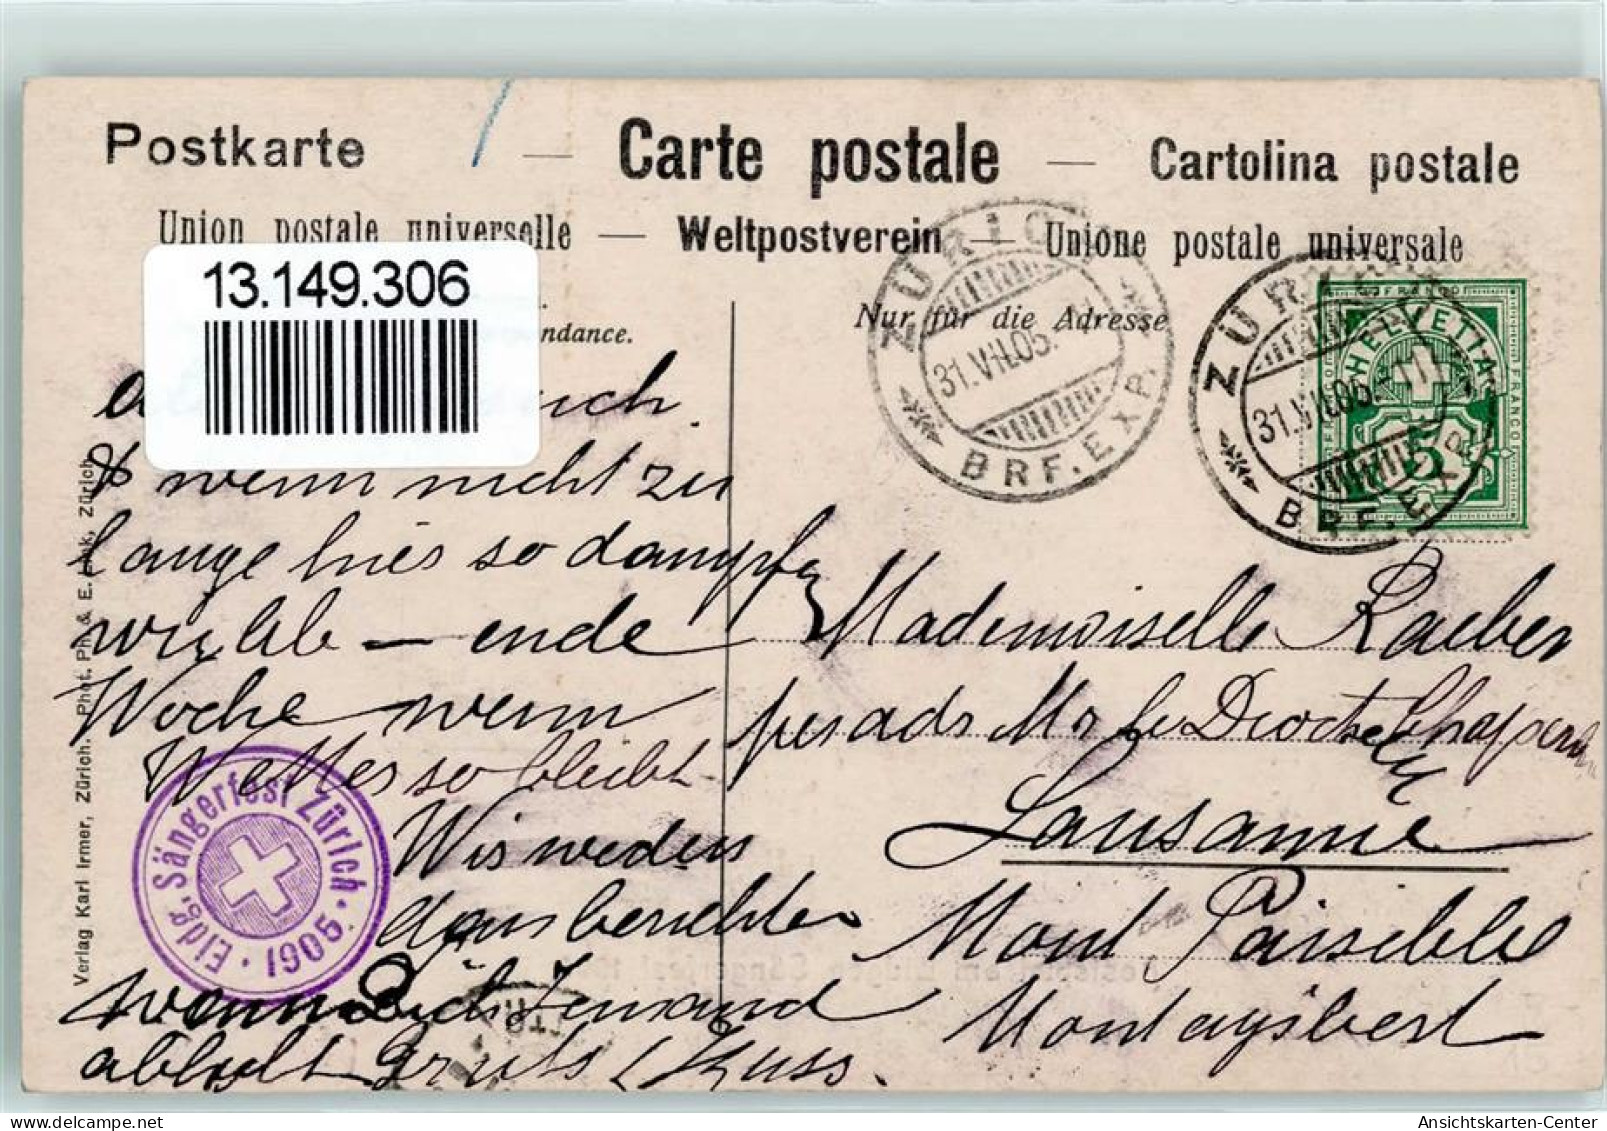 Postkarte — Carte postale — Cartolina postale
Union postale universelle — Weltpostverein — Unione postale universale
13.149.306
Nur für die Adresse
ndance.
ZÜRICH
31.VII.05.
BRF. EXP.
ZÜRICH
31.VII.05.-11
BRF. EXP.
FRANCO
HELVETIA
FRANCO
5
uch.
& wenn nicht zu
lange hies so dampfg
— ende
Woche wenn
Wetter so bleibt
Wir werden
dann berichten
wenn Dich Jemand
abholt Gruss & Kuss.
Mademoiselle Raeber
per adr Mr
Lausanne
Mont Paisible
Montagibert
Eidg. Sängerfest Zürich · 1905 ·
Verlag Karl Irmer, Zürich. Phot. Ph. & E. Link, Zürich
Ansichtskarten-Center